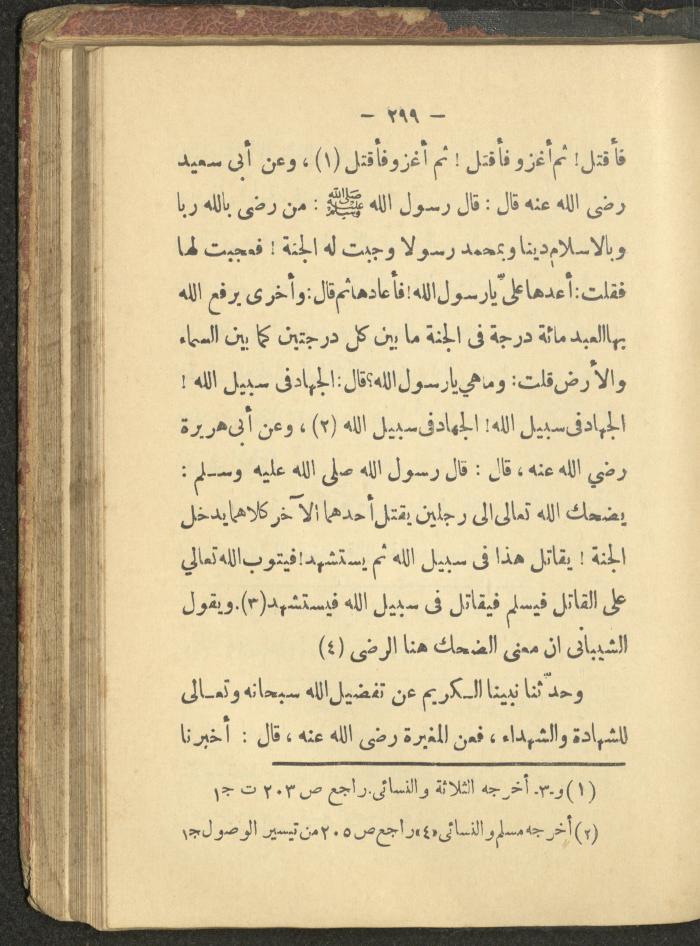 — ٢٩٩ —
فأقتل! ثم أغزو فأقتل ! ثم أغزو فأقتل (١) ، وعن أبى سعيد
رضى الله عنه قال : قال رسول الله ﷺ : من رضى بالله ربا
وبالاسلام دينا وبمحمد رسولا وجبت له الجنة ! فعجبت لها
فقلت: أعدها علىّ يارسول الله! فأعادها ثم قال: وأخرى يرفع الله
بها العبد مائة درجة فى الجنة ما بين كل درجتين كما بين السماء
والأرض قلت: وما هي يارسول الله؟ قال: الجهاد فى سبيل الله !
الجهاد فى سبيل الله! الجهاد فى سبيل الله (٢) ، وعن أبى هريرة
رضي الله عنه ، قال : قال رسول الله صلى الله عليه وسلم :
يضحك الله تعالى الى رجلين يقتل أحدهما الآخر كلاهما يدخل
الجنة ! يقاتل هذا فى سبيل الله ثم يستشهد! فيتوب الله تعالي
على القاتل فيسلم فيقاتل فى سبيل الله فيستشهد (٣). ويقول
الشيبانى ان معنى الضحك هنا الرضى (٤)
وحدّثنا نبينا الكريم عن تفضيل الله سبحانه وتعالى
للشهادة والشهداء ، فعن المغيرة رضى الله عنه ، قال : أخبرنا
(١) و-٣- أخرجه الثلاثة والنسائى. راجع ص ٢٠٣ ت ج١
(٢) أخرجه مسلم والنسائى «٤» راجع ص ٢٠٥ من تيسير الوصول ج١